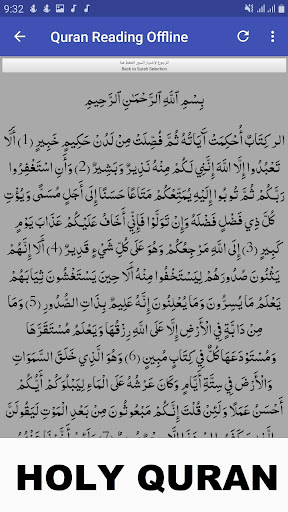 9:32
Quran Reading Offline
الرجوع لاختيار السور اضغط هنا
Back to Surah Selection
بِسْمِ ٱللَّهِ ٱلرَّحْمَٰنِ ٱلرَّحِيمِ
الر كِتَابٌ أُحْكِمَتْ آيَاتُهُ ثُمَّ فُصِّلَتْ مِنْ لَدُنْ حَكِيمٍ خَبِيرٍ (1) أَلَّا
تَعْبُدُوا إِلَّا اللَّهَ إِنَّنِي لَكُمْ مِنْهُ نَذِيرٌ وَبَشِيرٌ (2) وَأَنِ اسْتَغْفِرُوا
رَبَّكُمْ ثُمَّ تُوبُوا إِلَيْهِ يُمَتِّعْكُمْ مَتَاعًا حَسَنًا إِلَى أَجَلٍ مُسَمًّى وَيُؤْتِ
كُلَّ ذِي فَضْلٍ فَضْلَهُ وَإِنْ تَوَلَّوْا فَإِنِّي أَخَافُ عَلَيْكُمْ عَذَابَ يَوْمٍ
كَبِيرٍ (3) إِلَى اللَّهِ مَرْجِعُكُمْ وَهُوَ عَلَى كُلِّ شَيْءٍ قَدِيرٌ (4) أَلَا إِنَّهُمْ
يَثْنُونَ صُدُورَهُمْ لِيَسْتَخْفُوا مِنْهُ أَلَا حِينَ يَسْتَغْشُونَ ثِيَابَهُمْ
يَعْلَمُ مَا يُسِرُّونَ وَمَا يُعْلِنُونَ إِنَّهُ عَلِيمٌ بِذَاتِ الصُّدُورِ (5) وَمَا
مِنْ دَابَّةٍ فِي الْأَرْضِ إِلَّا عَلَى اللَّهِ رِزْقُهَا وَيَعْلَمُ مُسْتَقَرَّهَا
وَمُسْتَوْدَعَهَا كُلٌّ فِي كِتَابٍ مُبِينٍ (6) وَهُوَ الَّذِي خَلَقَ السَّمَوَاتِ
وَالْأَرْضَ فِي سِتَّةِ أَيَّامٍ وَكَانَ عَرْشُهُ عَلَى الْمَاءِ لِيَبْلُوَكُمْ أَيُّكُمْ
أَحْسَنُ عَمَلًا وَلَئِنْ قُلْتَ إِنَّكُمْ مَبْعُوثُونَ مِنْ بَعْدِ الْمَوْتِ لَيَقُولَنَّ
HOLY QURAN